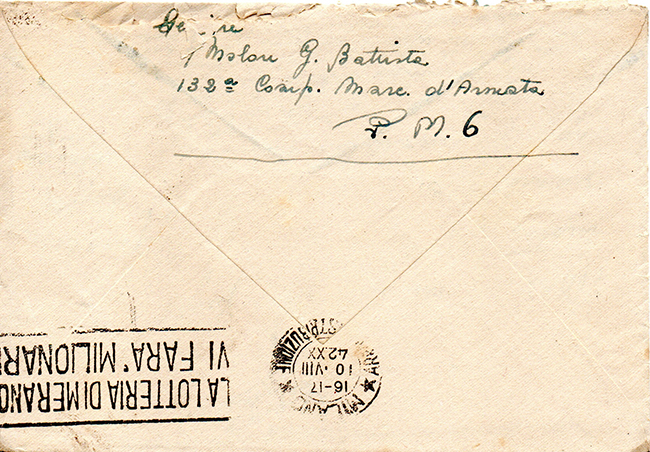 G. Battista
132ª Comp. Marc. d'Armata
P. M. 6
LA LOTTERIA DI MERANO
VI FARA' MILIONARI
MILANO
16-17
10·VIII
42.XX
DISTRIBUZIONE